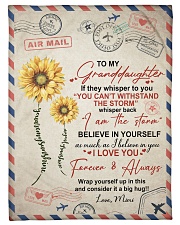 AIR MAIL
TO MY
Granddaughter
If they whisper to you
"YOU CAN'T WITHSTAND
THE STORM"
whisper back
I am the storm
BELIEVE IN YOURSELF
as much as I believe in you
I LOVE YOU
Forever & Always
Wrap yourself up in this
and consider it a big hug!!
Love, Mimi
you are my sunshine